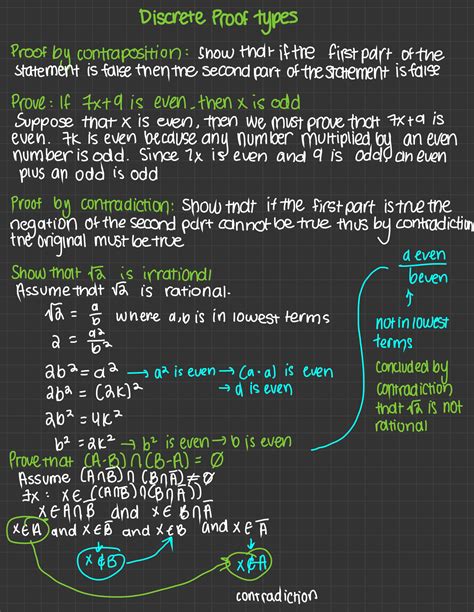 Discrete Proof types
Proof by contraposition: show that if the first part of the
statement is false then the second part of the statement is false
Prove: If 7x+9 is even, then x is odd
Suppose that x is even, then we must prove that 7x+9 is
even. 7k is even because any number multiplied by an even
number is odd. Since 7x is even and 9 is odd, an even
plus an odd is odd
Proof by contradiction: Show that if the first part is true the
negation of the second part cannot be true thus by contradiction
the original must be true
Show that √2 is irrational
Assume that √2 is rational.
√2 = a/b where a,b is in lowest terms
2 = a²/b²
2b² = a² → a² is even → (a·a) is even
→ a is even
2b² = (2k)²
2b² = 4k²
b² = 2k² → b² is even → b is even
a even
b even
↑
not in lowest
terms
concluded by
contradiction
that √2 is not
rational
Prove that (A-B)∩(B-A) = ∅
Assume (A∩B̄)∩(B∩Ā) ≠ ∅
∃x : x∈((A∩B̄)∩(B∩Ā))
x∈A∩B̄ and x∈B∩Ā
x∈A and x∈B̄ and x∈B and x∈Ā
x∉B
x∉A
contradiction